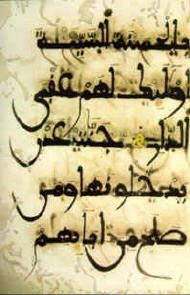 بالحسنة السيئة
اولئك لهم عقبى
الدار جنت عدن
يدخلونها ومن
صلح من ابايهم